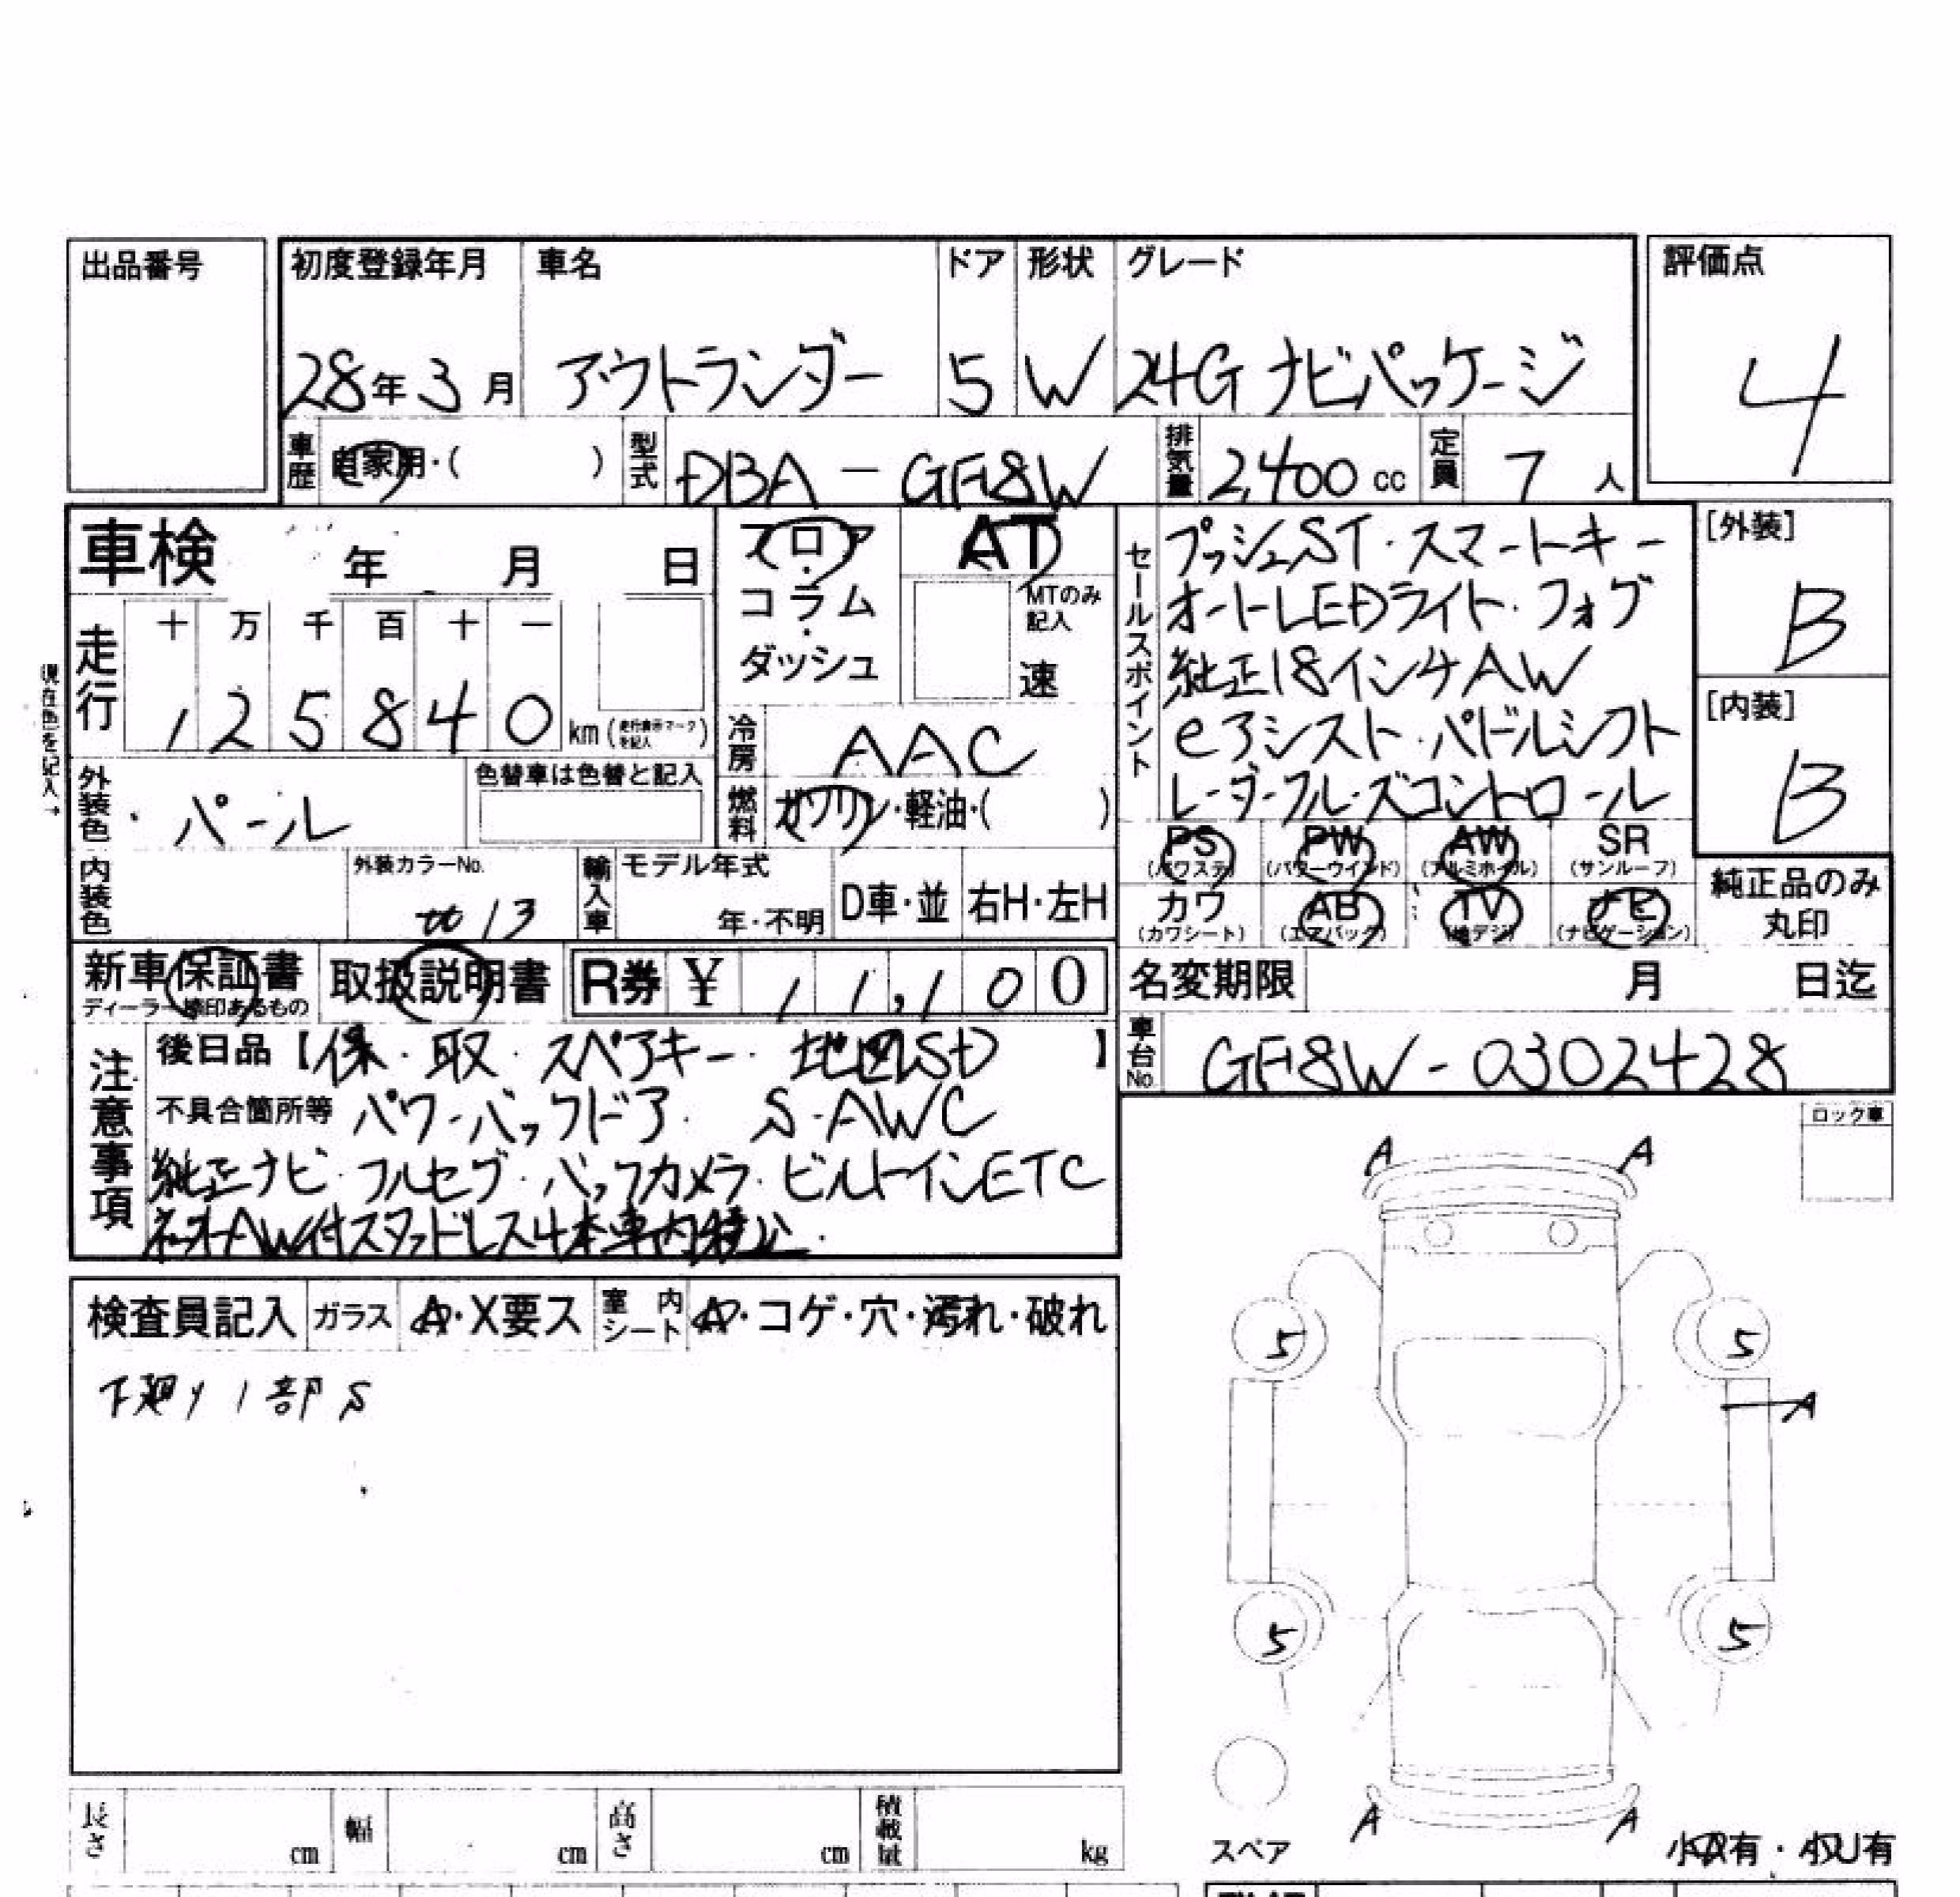 出品番号
初度登録年月 車名 ドア 形状 グレード 評価点
28年3月 アウトランダー 5 W 24G ナビパッケージ 4
車歴 自家用・( ) 型式 DBA-GF8W 排気量 2,400cc 定員 7人
車検 年 月 日
フロア・コラム・ダッシュ
AT
MTのみ記入
速
セールスポイント
プッシュST・スマートキー
オートLEDライト・フォグ
純正18インチAW
eアシスト・パドルシフト
レーダークルーズコントロール
[外装]
B
[内装]
B
現在色を記入→
走行 十 万 千 百 十 一
1 2 5 8 4 0 km (走行表示マークを記入)
冷房 AAC
外装色 パール 色替車は色替と記入
燃料 ガソリン・軽油・( )
内装色 外装カラーNo. W13
輸入車 モデル年式 年・不明 D車・並 右H・左H
PS (パワステ) PW (パワーウインド) AW (アルミホイル) SR (サンルーフ)
カワ (カワシート) AB (エアバック) TV (地デジ) ナビ (ナビゲーション)
純正品のみ丸印
新車保証書 取扱説明書 R券 ¥ 11,100
名変期限 月 日迄
車台No. GF8W-0302428
注意事項
後日品【保・取・スペアキー・地図SD】
不具合箇所等 パワーバックドア S-AWC
純正ナビ・フルセグ・バックカメラ・ビルトインETC
社外AW付スタッドレス4本車内積込
ロック車
検査員記入 ガラス A・X要ス 室内シート A・コゲ・穴・汚れ・破れ
下廻り1部S
A A
5 5
A
5 5
A A
スペア
小A有・小U有
長さ cm 幅 cm 高さ cm 積載量 kg